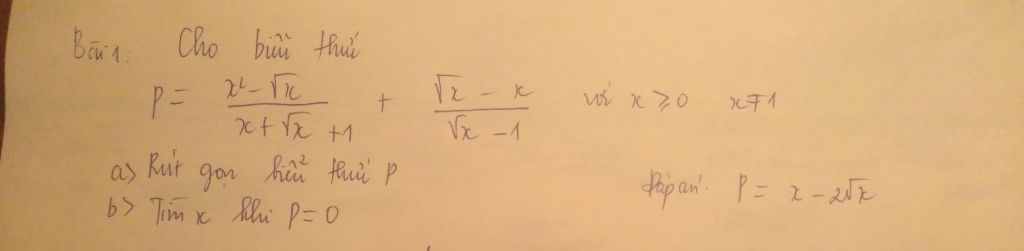 Bài 1: Cho biểu thức
P = (x² - √x)/(x + √x + 1) + (√x - x)/(√x - 1) với x ≥ 0 x ≠ 1
a> Rút gọn biểu thức P
b> Tìm x khi P = 0
Đáp án: P = x - 2√x